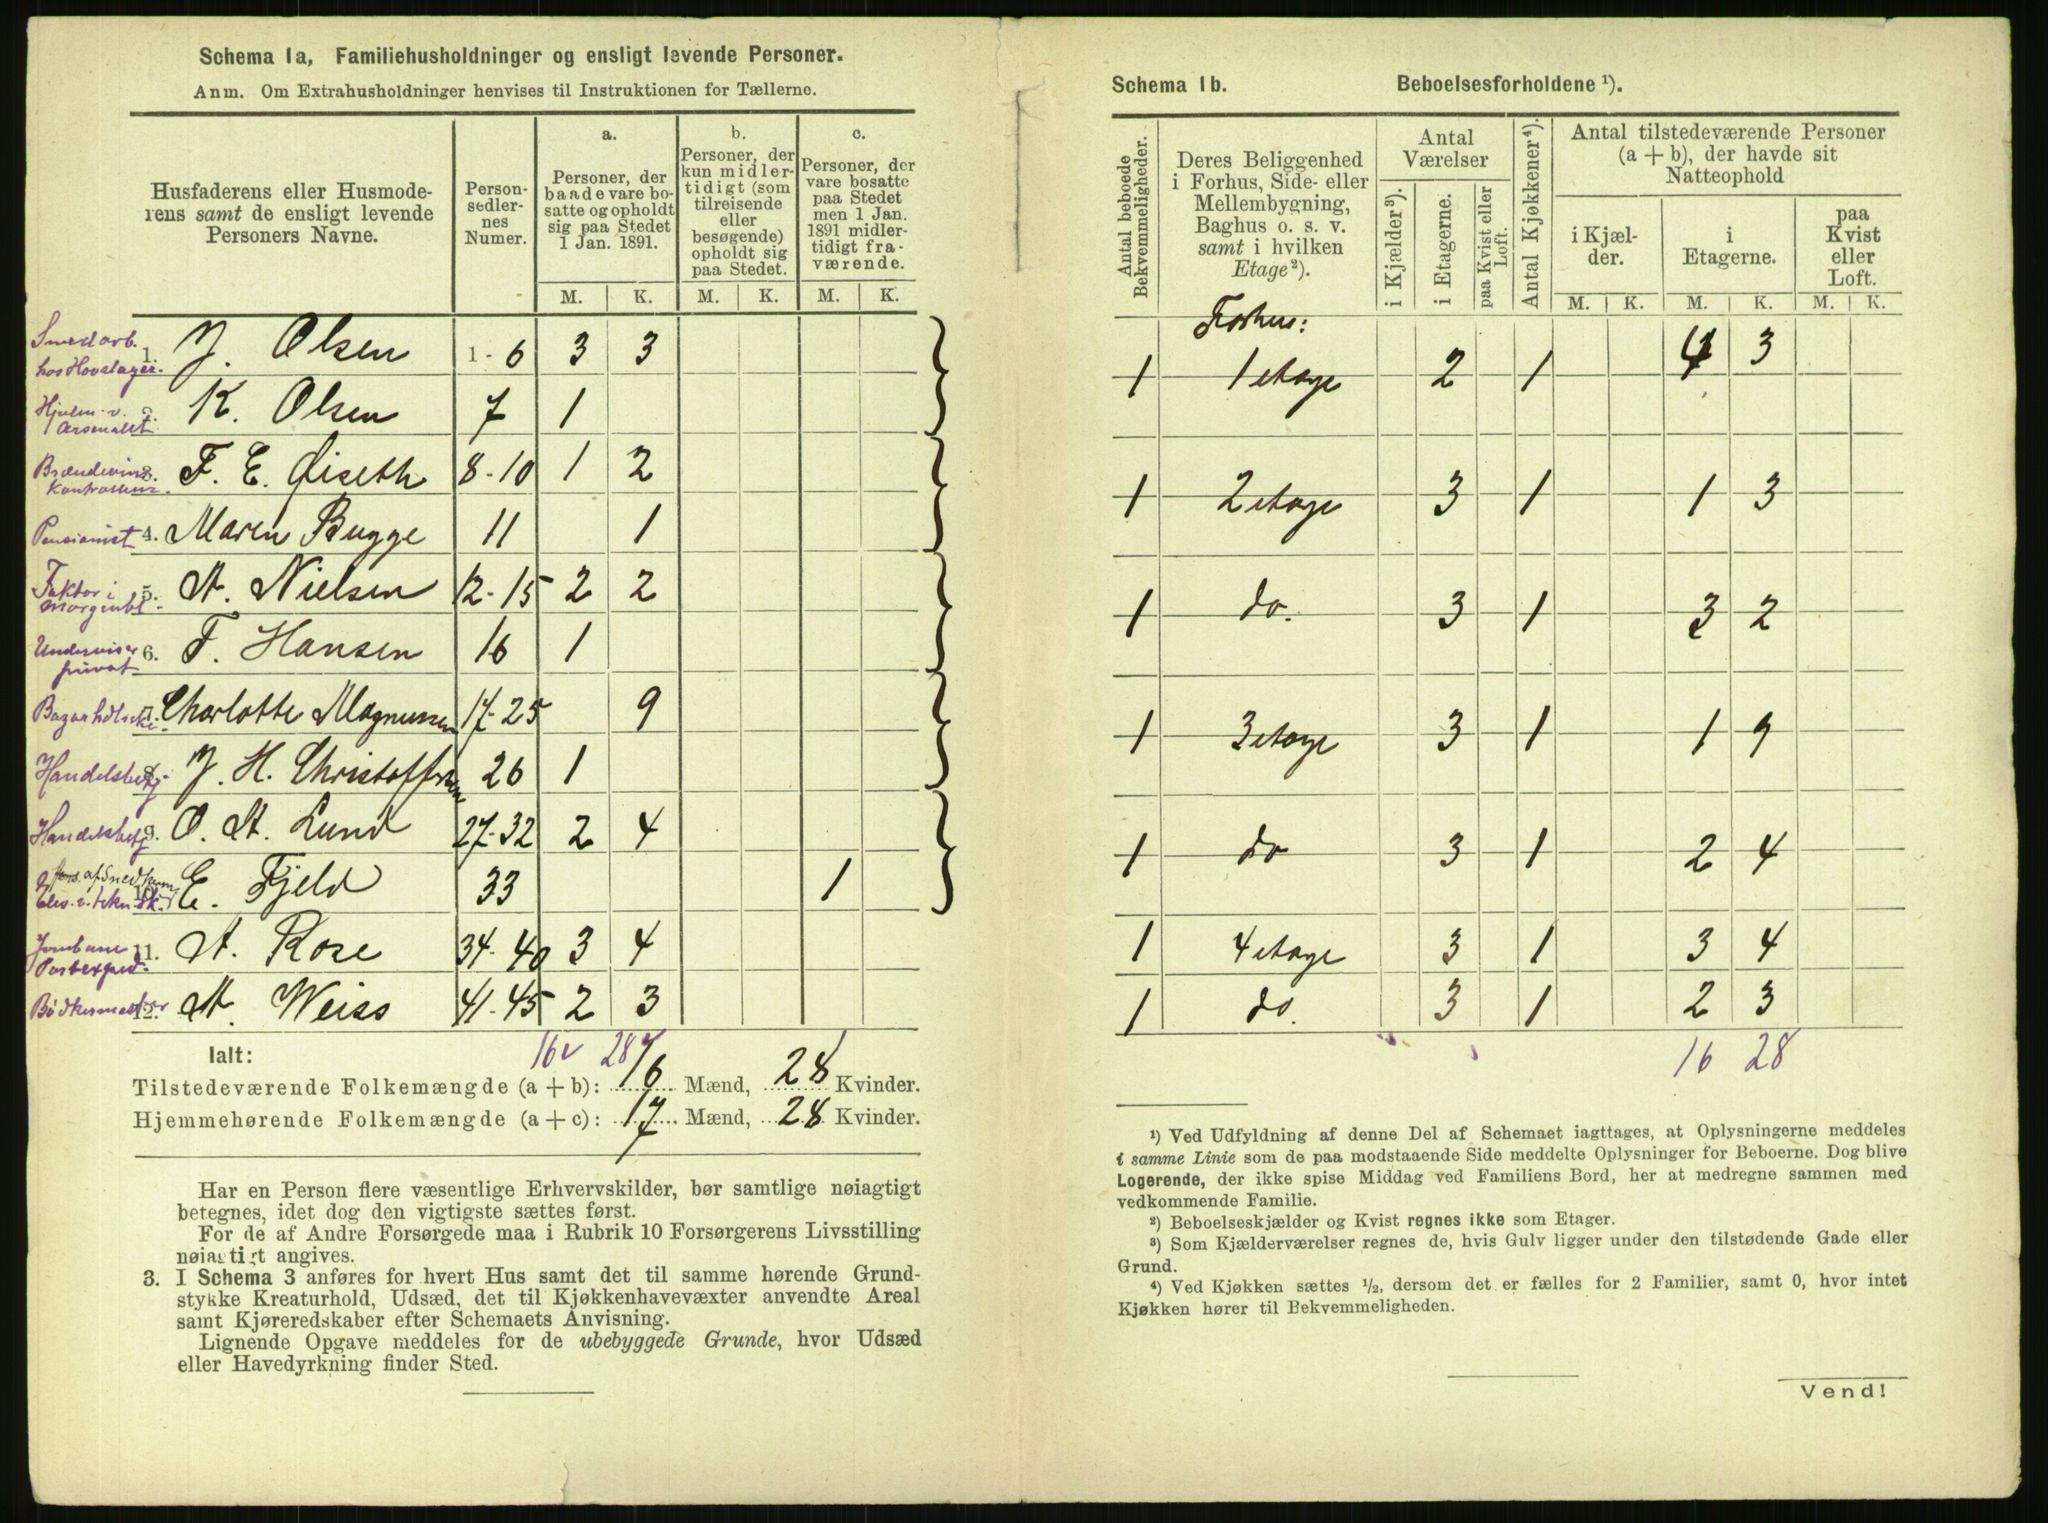 Schema 1a, Familiehusholdninger og ensligt levende Personer.
Anm. Om Extrahusholdninger henvises til Instruktionen for Tællerne.
Husfaderens eller Husmode-
rens samt de ensligt levende
Personers Navne.
Person-
sedler-
nes
Numer.
a.
Personer, der
baade vare bo-
satte og opholdt
sig paa Stedet
1 Jan. 1891.
b.
Personer, der
kun midler-
tidigt (som
tilreisende
eller
besøgende)
opholdt sig
paa Stedet.
c.
Personer, der
vare bosatte
paa Stedet
men 1 Jan.
1891 midler-
tidigt fra-
værende.
M. K. M. K. M. K.
Smedarb. hos Hovslager. 1. J. Olsen 1-6 3 3
Hjælm. v. Arsenalet 2. K. Olsen 7 1
Brændevins kontrollør. 3. F. E. Øiseth 8-10 1 2
Pensionist 4. Maren Bugge 11 1
Faktor i Morgenbl. 5. A. Nielsen 12-15 2 2
Underviser privat 6. F. Hansen 16 1
7. Charlotte Magnussen 17-25 9
Handelsbetj. 8. J. H. Christoffersen 26 1
Handelsbetj. 9. O. A. Lund 27-32 2 4
10. E. Fjeld 33 1
Jernbane Postexped. 11. A. Rose 34-40 3 4
Bødkermester 12. A. Weiss 41-45 2 3
Ialt: 16 28
Tilstedeværende Folkemængde (a + b): 16 Mænd, 28 Kvinder.
Hjemmehørende Folkemængde (a + c): 17 Mænd, 28 Kvinder.
Har en Person flere væsentlige Erhvervskilder, bør samtlige nøiagtigt
betegnes, idet dog den vigtigste sættes først.
For de af Andre Forsørgede maa i Rubrik 10 Forsørgerens Livsstilling
nøiagtigt angives.
3. I Schema 3 anføres for hvert Hus samt det til samme hørende Grund-
stykke Kreaturhold, Udsæd, det til Kjøkkenhavevæxter anvendte Areal
samt Kjøreredskaber efter Schemaets Anvisning.
Lignende Opgave meddeles for de ubebyggede Grunde, hvor Udsæd
eller Havedyrkning finder Sted.
Schema 1b. Beboelsesforholdene ¹).
Antal beboede
Bekvemmeligheder.
Deres Beliggenhed
i Forhus, Side- eller
Mellembygning,
Baghus o. s. v.
samt i hvilken
Etage²).
Antal
Værelser
i Kjælder³).
i Etagerne.
paa Kvist eller
Loft.
Antal Kjøkkener⁴).
Antal tilstedeværende Personer
(a + b), der havde sit
Natteophold
i Kjæl-
der.
i
Etagerne.
paa
Kvist
eller
Loft.
M. K. M. K. M. K.
Forhus:
1 1 etage 2 1 4 3
1 2 etage 3 1 1 3
1 do. 3 1 3 2
1 3 etage 3 1 1 9
1 do 3 1 2 4
1 4 etage 3 1 3 4
1 do. 3 1 2 3
16 28
¹) Ved Udfyldning af denne Del af Schemaet iagttages, at Oplysningerne meddeles
i samme Linie som de paa modstaaende Side meddelte Oplysninger for Beboerne. Dog blive
Logerende, der ikke spise Middag ved Familiens Bord, her at medregne sammen med
vedkommende Familie.
²) Beboelseskjælder og Kvist regnes ikke som Etager.
³) Som Kjælderværelser regnes de, hvis Gulv ligger under den tilstødende Gade eller
Grund.
⁴) Ved Kjøkken sættes ½, dersom det er fælles for 2 Familier, samt 0, hvor intet
Kjøkken hører til Bekvemmeligheden.
Vend!